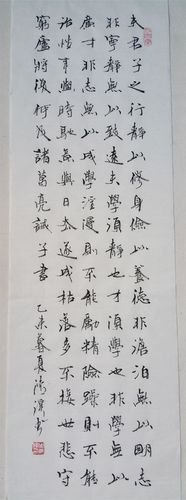 夫君子之行靜以修身儉以養德非澹泊無以明志
非寧靜無以致遠夫學須靜也才須學也非學無以
廣才非志無以成學淫漫則不能勵精險躁則不能
治性年與時馳意與日去遂成枯落多不接世悲守
窮廬將復何及諸葛亮誡子書
乙未暮夏